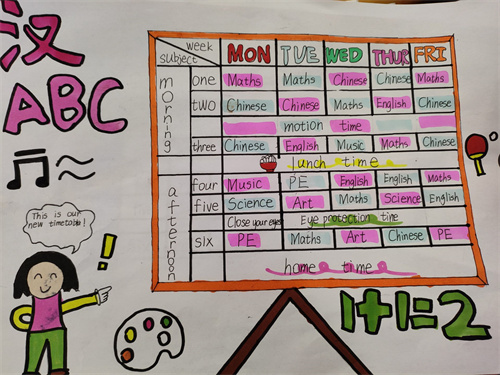 汉
ABC
week
subject
MON TUE WED THUR FRI
morning
one Maths Maths Chinese Chinese Maths
two Chinese Chinese Maths English Chinese
motion time
three Chinese English Music Maths Chinese
lunch time
afternoon
four Music PE English English Maths
five Science Art Maths Science English
Close your eyes Eye protection time
six PE Maths Art Chinese PE
home time
This is our
new timetable!
!
1+1=2